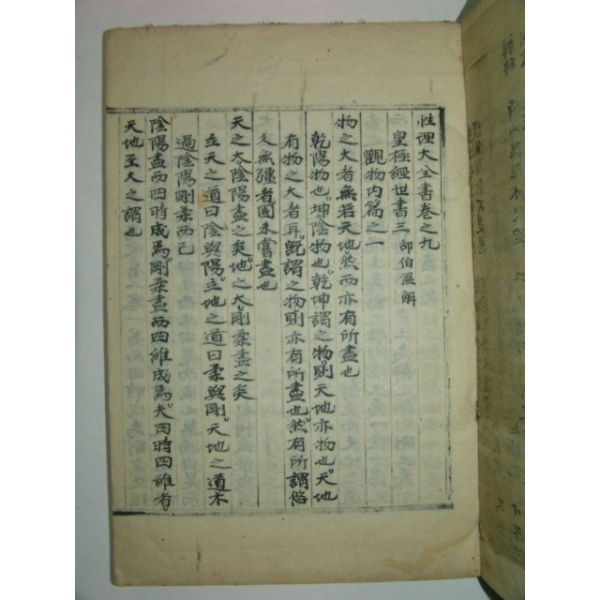 性理大全書卷之九
皇極經世書三 邵伯温解
觀物内篇之一
物之大者無若天地然而亦有所盡也
乾陽物也坤陰物也乾坤謂之物則天地亦物也天地
有物之大者耳旣謂之物則亦有所盡也然有所謂
大久無疆者固未嘗盡也
天之大陰陽盡之矣地之大剛柔盡之矣
立天之道曰陰與陽立地之道曰柔與剛天地之道不
過陰陽剛柔而已
陰陽盡而四時成焉剛柔盡而四維成焉夫四時四維者
天地至大之謂也